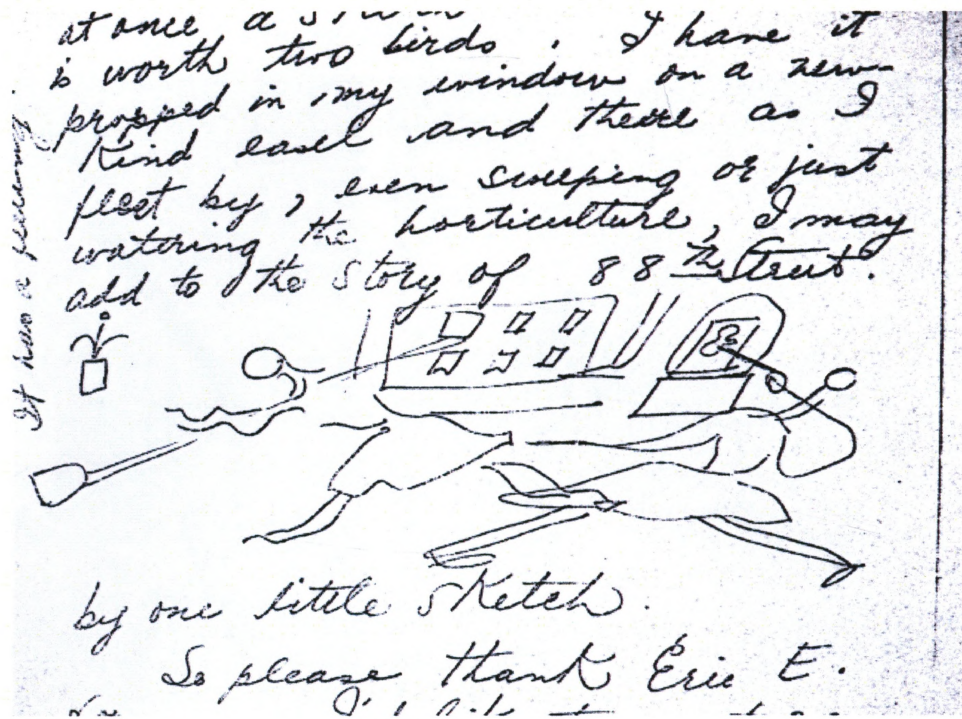 at once a
is worth two birds. I have it
propped in my window on a new
kind easel and there as I
fleet by, even sweeping or just
watering the horticulture, I may
add to the story of 88th Street.
by one little sketch.
So please thank Eric E.
It has a